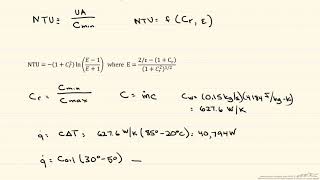 NTU = UA / Cmin    NTU = f (Cr, E)
NTU = −(1 + Cr²) ln((E − 1)/(E + 1)) where E = (2/ε − (1 + Cr))/(1 + Cr²)^1/2
Cr = Cmin / Cmax    C = ṁc    Cw = (0.15 kg/s)(4184 J/kg-K)
= 627.6 W/K
q̇ = CΔT = 627.6 W/K (85° - 20°C) = 40,794 W
q̇ = Coil (30° - 5°)